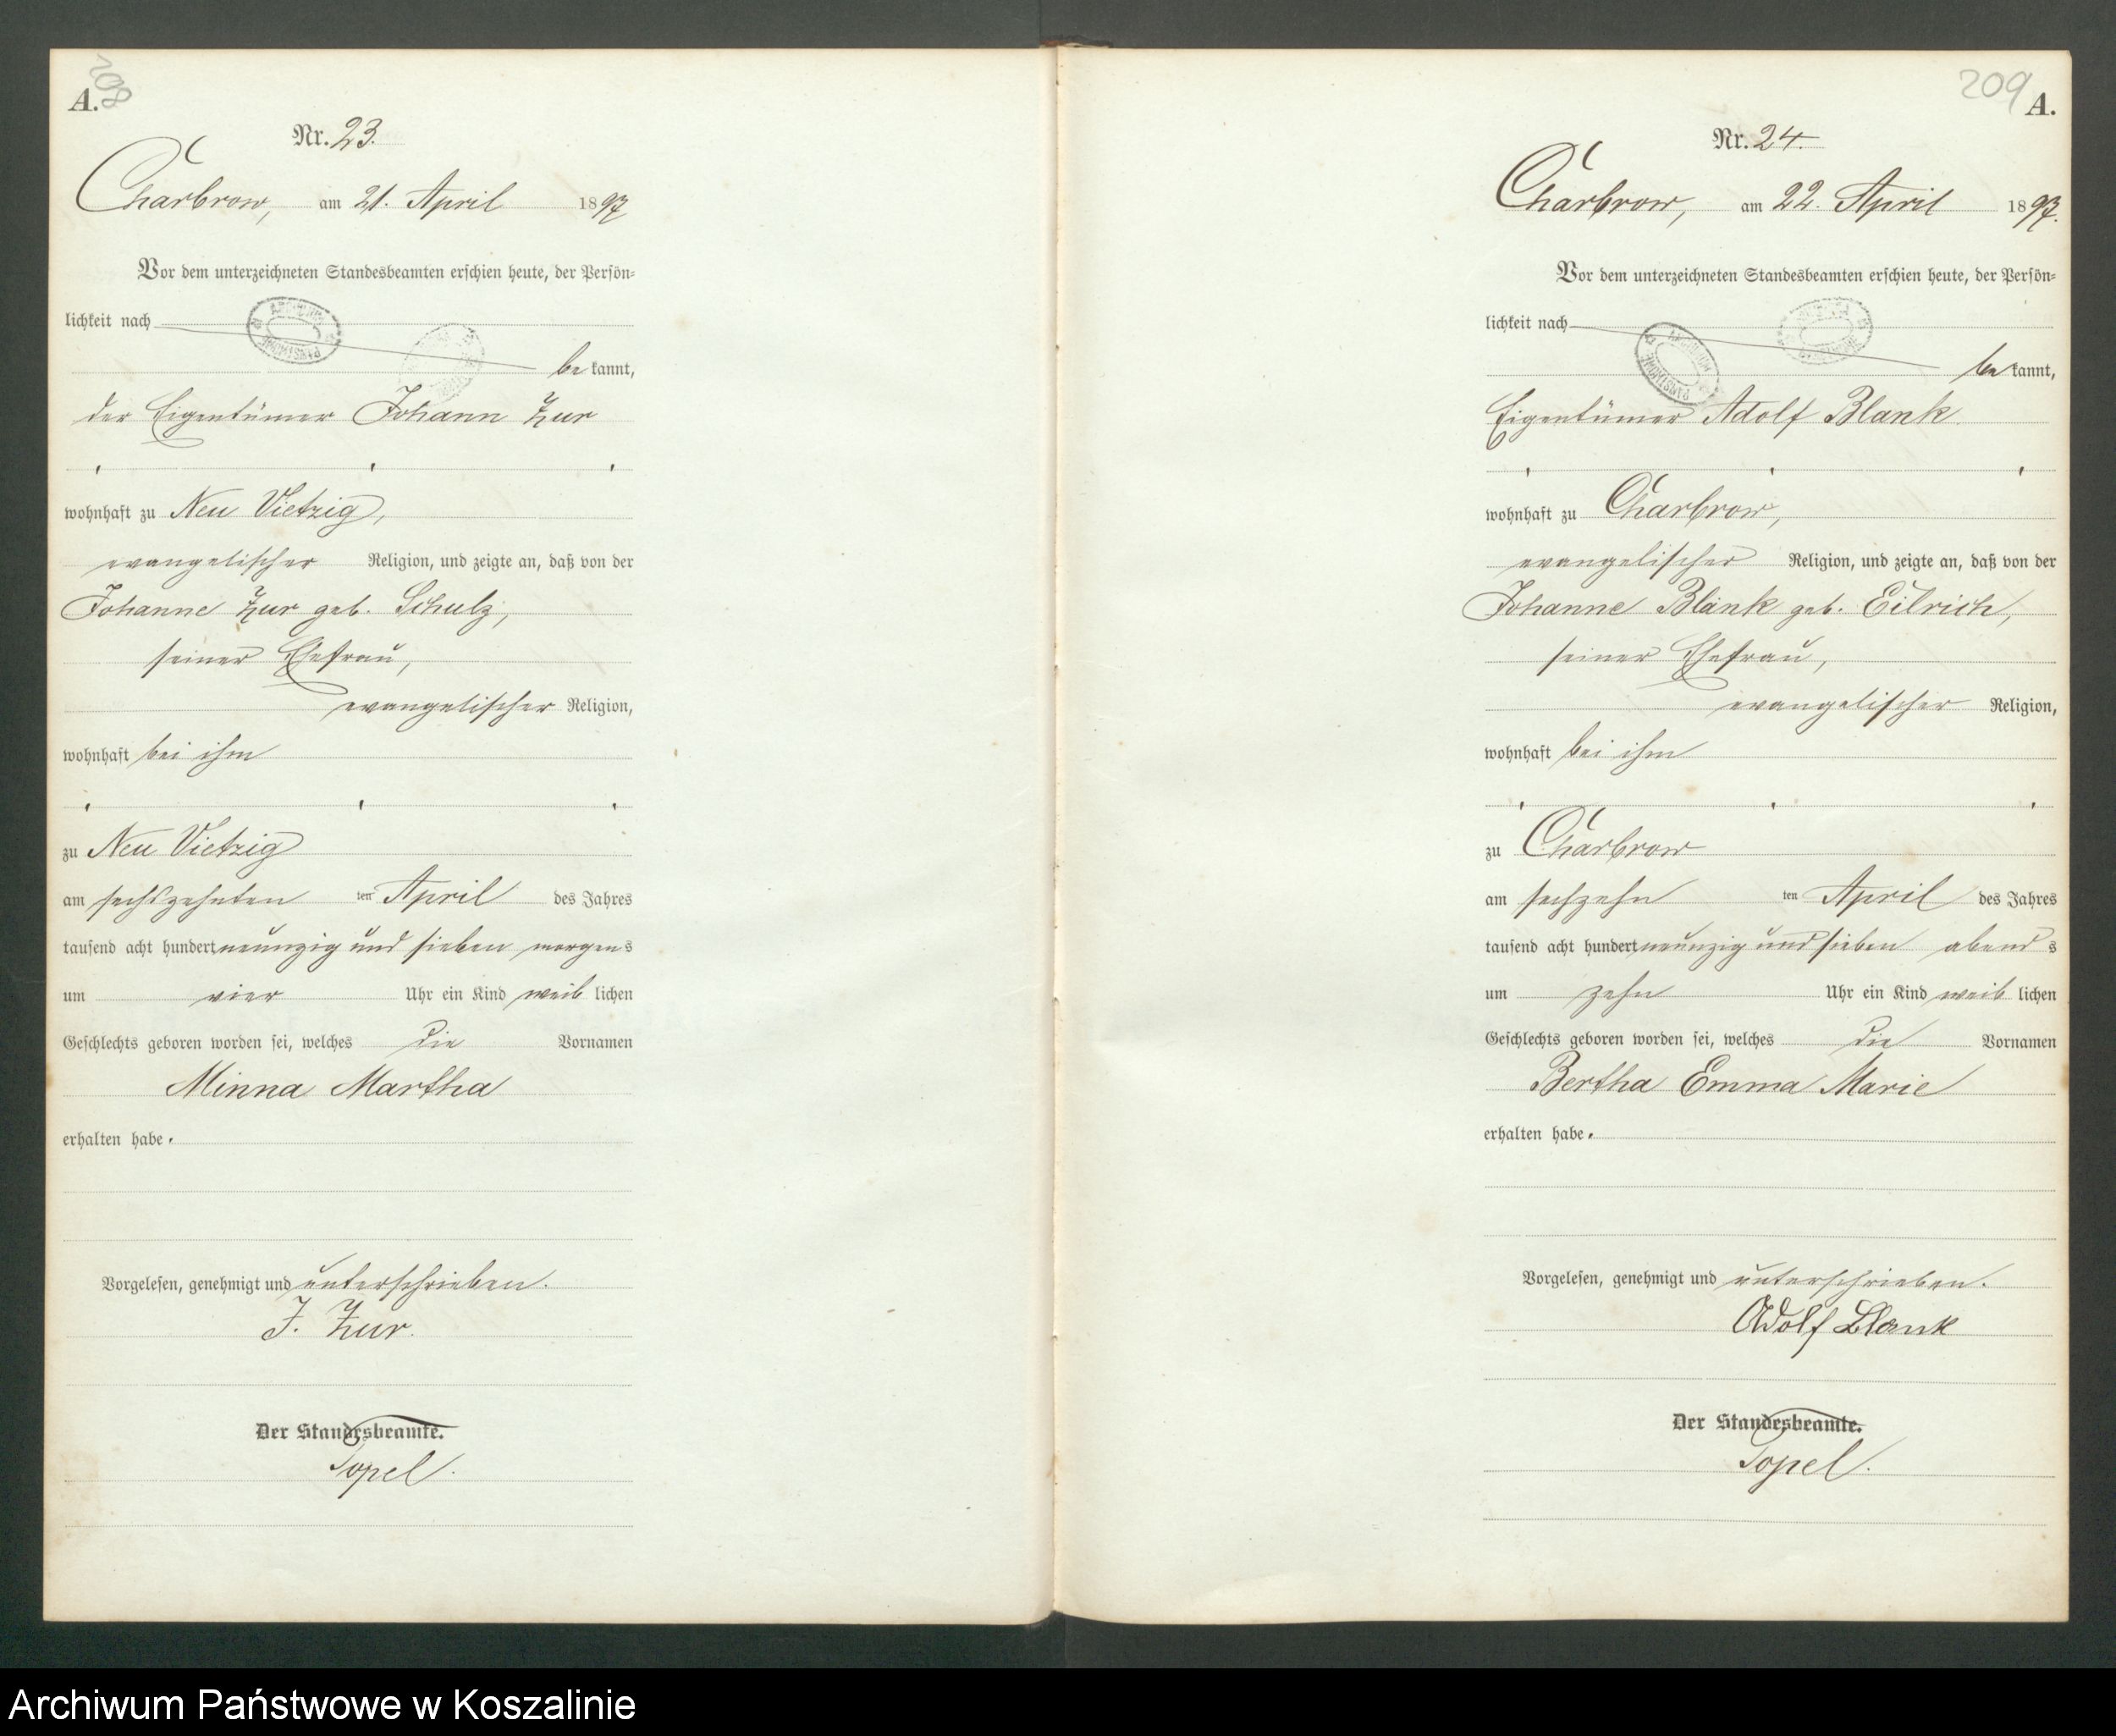 208
A.
Nr. 23.
Charbrow, am 21. April 1897
Vor dem unterzeichneten Standesbeamten erschien heute, der Persön-
lichkeit nach
be kannt,
der Eigentümer Johann Zur
wohnhaft zu Neu Vietzig,
evangelischer Religion, und zeigte an, daß von der
Johanne Zur geb. Schulz,
seiner Ehefrau,
evangelischer Religion,
wohnhaft bei ihm
zu Neu Vietzig
am sechszehnten ten April des Jahres
tausend acht hundert neunzig und sieben morgens
um vier Uhr ein Kind weib lichen
Geschlechts geboren worden sei, welches die Vornamen
Minna Martha
erhalten habe.
Vorgelesen, genehmigt und unterschrieben.
J. Zur.
Der Standesbeamte.
Topel.
209
A.
Nr. 24.
Charbrow, am 22. April 1897.
Vor dem unterzeichneten Standesbeamten erschien heute, der Persön-
lichkeit nach
be kannt,
Eigentümer Adolf Blank
wohnhaft zu Charbrow,
evangelischer Religion, und zeigte an, daß von der
Johanne Blank geb. Eilrich,
seiner Ehefrau,
evangelischer Religion,
wohnhaft bei ihm
zu Charbrow
am sechzehn ten April des Jahres
tausend acht hundert neunzig und sieben abend s
um zehn Uhr ein Kind weib lichen
Geschlechts geboren worden sei, welches die Vornamen
Bertha Emma Marie
erhalten habe.
Vorgelesen, genehmigt und unterschrieben.
Adolf Blank
Der Standesbeamte.
Topel.
Archiwum Państwowe w Koszalinie